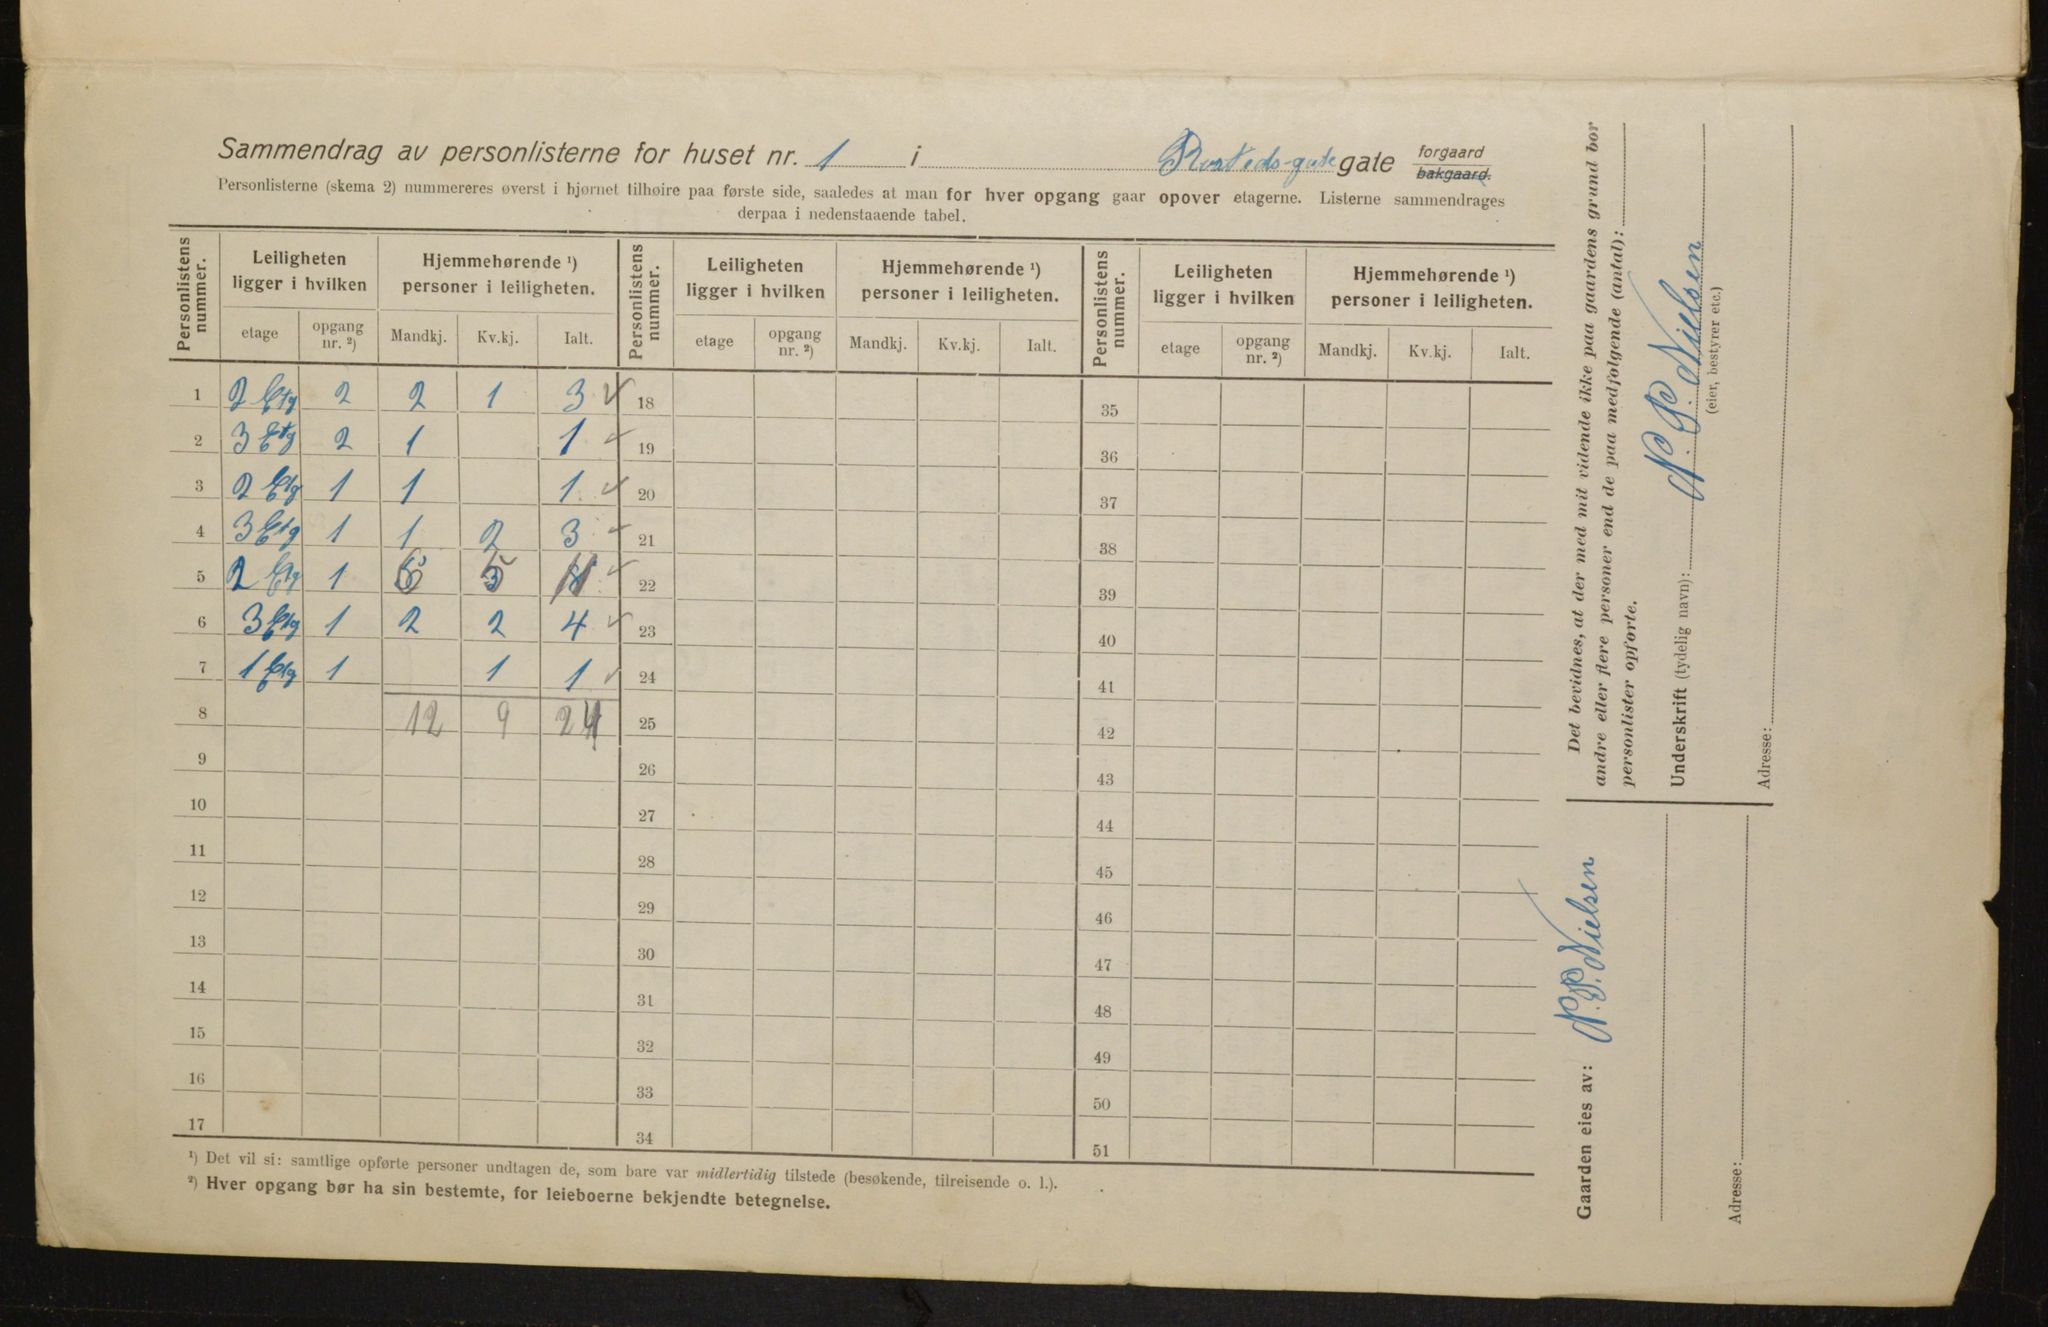 Sammendrag av personlisterne for huset nr. 1 i Rosteds-gate gate forgaard bakgaard.
Personlisterne (skema 2) nummereres øverst i hjørnet tilhøire paa første side, saaledes at man for hver opgang gaar opover etagerne. Listerne sammendrages
derpaa i nedenstaaende tabel.
Personlistens nummer. Leiligheten ligger i hvilken Hjemmehørende ¹) personer i leiligheten. Personlistens nummer. Leiligheten ligger i hvilken Hjemmehørende ¹) personer i leiligheten. Personlistens nummer. Leiligheten ligger i hvilken Hjemmehørende ¹) personer i leiligheten.
etage opgang nr. ²) Mandkj. Kv.kj. Ialt. etage opgang nr. ²) Mandkj. Kv.kj. Ialt. etage opgang nr. ²) Mandkj. Kv.kj. Ialt.
1 2 Etg 2 2 1 3 ✓ 18 35
2 3 Etg 2 1 1 ✓ 19 36
3 2 Etg 1 1 1 ✓ 20 37
4 3 Etg 1 1 2 3 ✓ 21 38
5 2 Etg 1 6 5 11 ✓ 22 39
6 3 Etg 1 2 2 4 ✓ 23 40
7 1 Etg 1 1 1 ✓ 24 41
8 12 9 24 25 42
9 26 43
10 27 44
11 28 45
12 29 46
13 30 47
14 31 48
15 32 49
16 33 50
17 34 51
¹) Det vil si: samtlige opførte personer undtagen de, som bare var midlertidig tilstede (besøkende, tilreisende o. l.).
²) Hver opgang bør ha sin bestemte, for leieboerne bekjendte betegnelse.
Det bevidnes, at der med mit vidende ikke paa gaardens grund bor
andre eller flere personer end de paa medfølgende (antal):
personlister opførte.
Underskrift (tydelig navn): N. P. Nielsen
(eier, bestyrer etc.)
Adresse:
Gaarden eies av: N. P. Nielsen
Adresse: